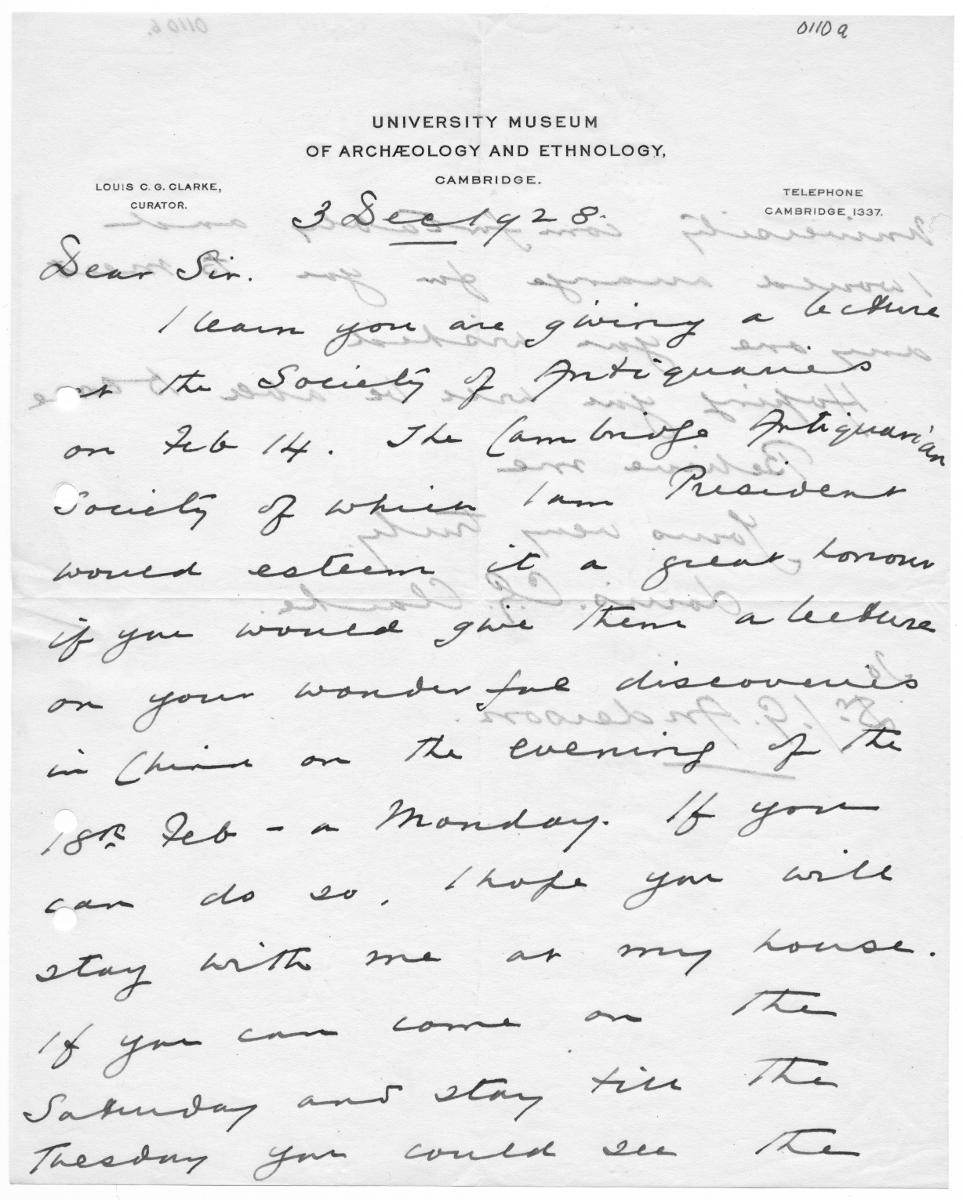 0110a
UNIVERSITY MUSEUM
OF ARCHÆOLOGY AND ETHNOLOGY,
CAMBRIDGE.
LOUIS C. G. CLARKE,
CURATOR.
TELEPHONE
CAMBRIDGE 1337.
3 Dec 1928.
Dear Sir.
I learn you are giving a lecture
at the Society of Antiquaries
on Feb 14. The Cambridge Antiquarian
Society of which I am President
would esteem it a great honour
if you would give them a lecture
on your wonderful discoveries
in China on the evening of the
18th Feb - a Monday. If you
can do so, I hope you will
stay with me at my house.
If you can come on the
Saturday and stay till the
Tuesday you could see the